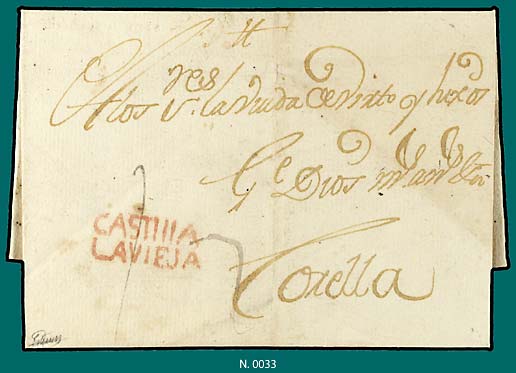 A los S.res la Viuda de Virto y hexos
G.e Dios m.s an.s
Torella
CASTILLA
LA VIEJA
N. 0033